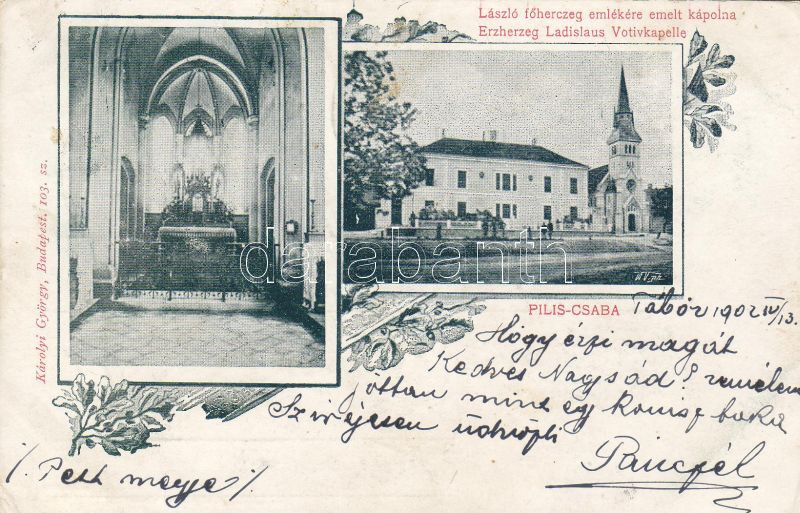 László főherczeg emlékére emelt kápolna
Erzherzeg Ladislaus Votivkapelle
Károlyi György, Budapest, 103. sz.
darabanth
PILIS-CSABA
Tábor 1902 IV/13.
Hogy érzi magát
Kedves Nagysád? remélem
jottan mint egy
Szivejesen üdvözli
(Pest megye)